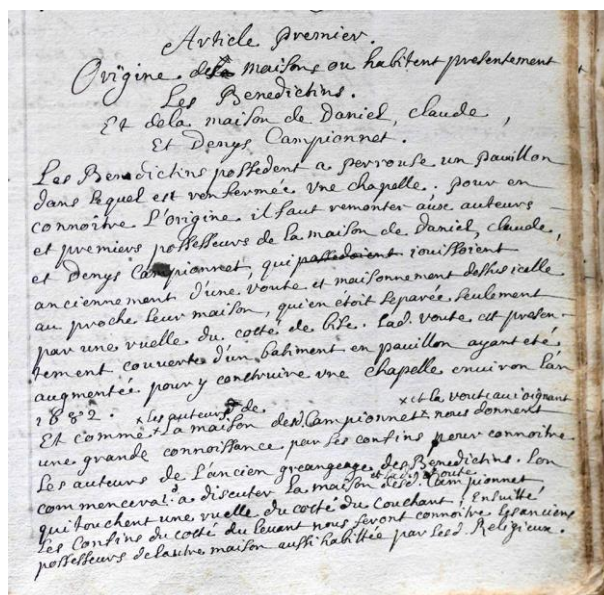 Article Premier.
Origine de la maisons ou habitent presentement
Les Benedictins.
Et dela maison de Daniel, claude,
Et Denys Campionnet.
Les Benedictins possedent a perrouse un pavillon
dans lequel est renfermée vne chapelle. pour en
connoître l'origine il faut remonter aux auteurs
et premiers possesseurs de la maison de Daniel, claude,
et Denys Campionnet, qui possedoient iouissoient
anciennement d'une voute et maisonnement dessus icelle
au proche leur maison, qui en étoit separée seulement
par une ruelle du costé de bise. Lad. voute est presen-
tement couverte d'un batiment en pavillon ayant eté
augmentée pour y construire vne chapelle environ l'an
1682. x les auteurs de x et la voute au ioignant
Et comme x la maison desd. Campionnet x nous donnent
une grande connoissance par les confins pour connoitre
Les auteurs de l'ancien grangeage des Benedictins. L'on
et lad. voute
commencera a discuter la maison desd. Campionnet
qui touchent une ruelle du costé du Couchant; Ensuitte
les Confins du costé du levant nous feront connoitre les anciens
possesseurs de la autre maison aussi habittée par lesd. Religieux.